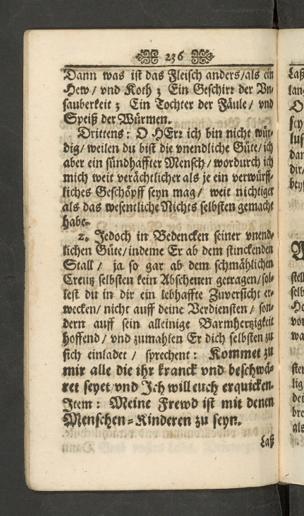 236
Dann was ist das Fleisch anders/als ein
Hew/ vnd Koth; Ein Geschirr der Vn-
sauberkeit; Ein Tochter der Fäule/ vnd
Speiß der Würmen.
Drittens: O HErr ich bin nicht wür-
dig/ weilen du bist die vnendliche Güte/ ich
aber ein sündhaffter Mensch/ wordurch ich
mich weit verächtlicher als je ein verwürff-
liches Geschöpff seyn mag/ weit nichtiger
als das wesentliche Nichts selbsten gemacht
habe.
2. Jedoch in Bedencken seiner vnend-
lichen Güte/ indeme Er ab dem stinckenden
Stall/ ja so gar ab dem schmählichen
Creutz selbsten kein Abscheuen getragen/ sol-
lest du in dir ein lebhaffte Zuversicht er-
wecken/ nicht auff deine Verdiensten/ son-
dern auff sein alleinige Barmhertzigkeit
hoffend/ vnd zumahlen Er dich selbsten zu
sich einladet/ sprechent: Kommet zu
mir alle die ihr kranck vnd beschwä-
ret seyet vnd Ich will euch erquicken.
Item: Meine Frewd ist mit denen
Menschen-Kinderen zu seyn.
Laß